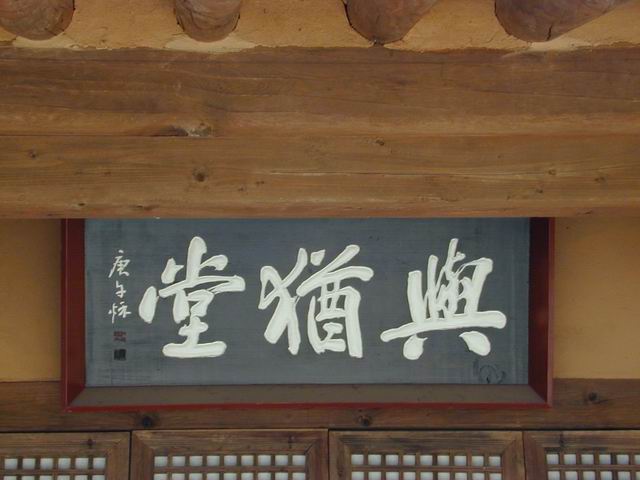 與猶堂
庚午秋